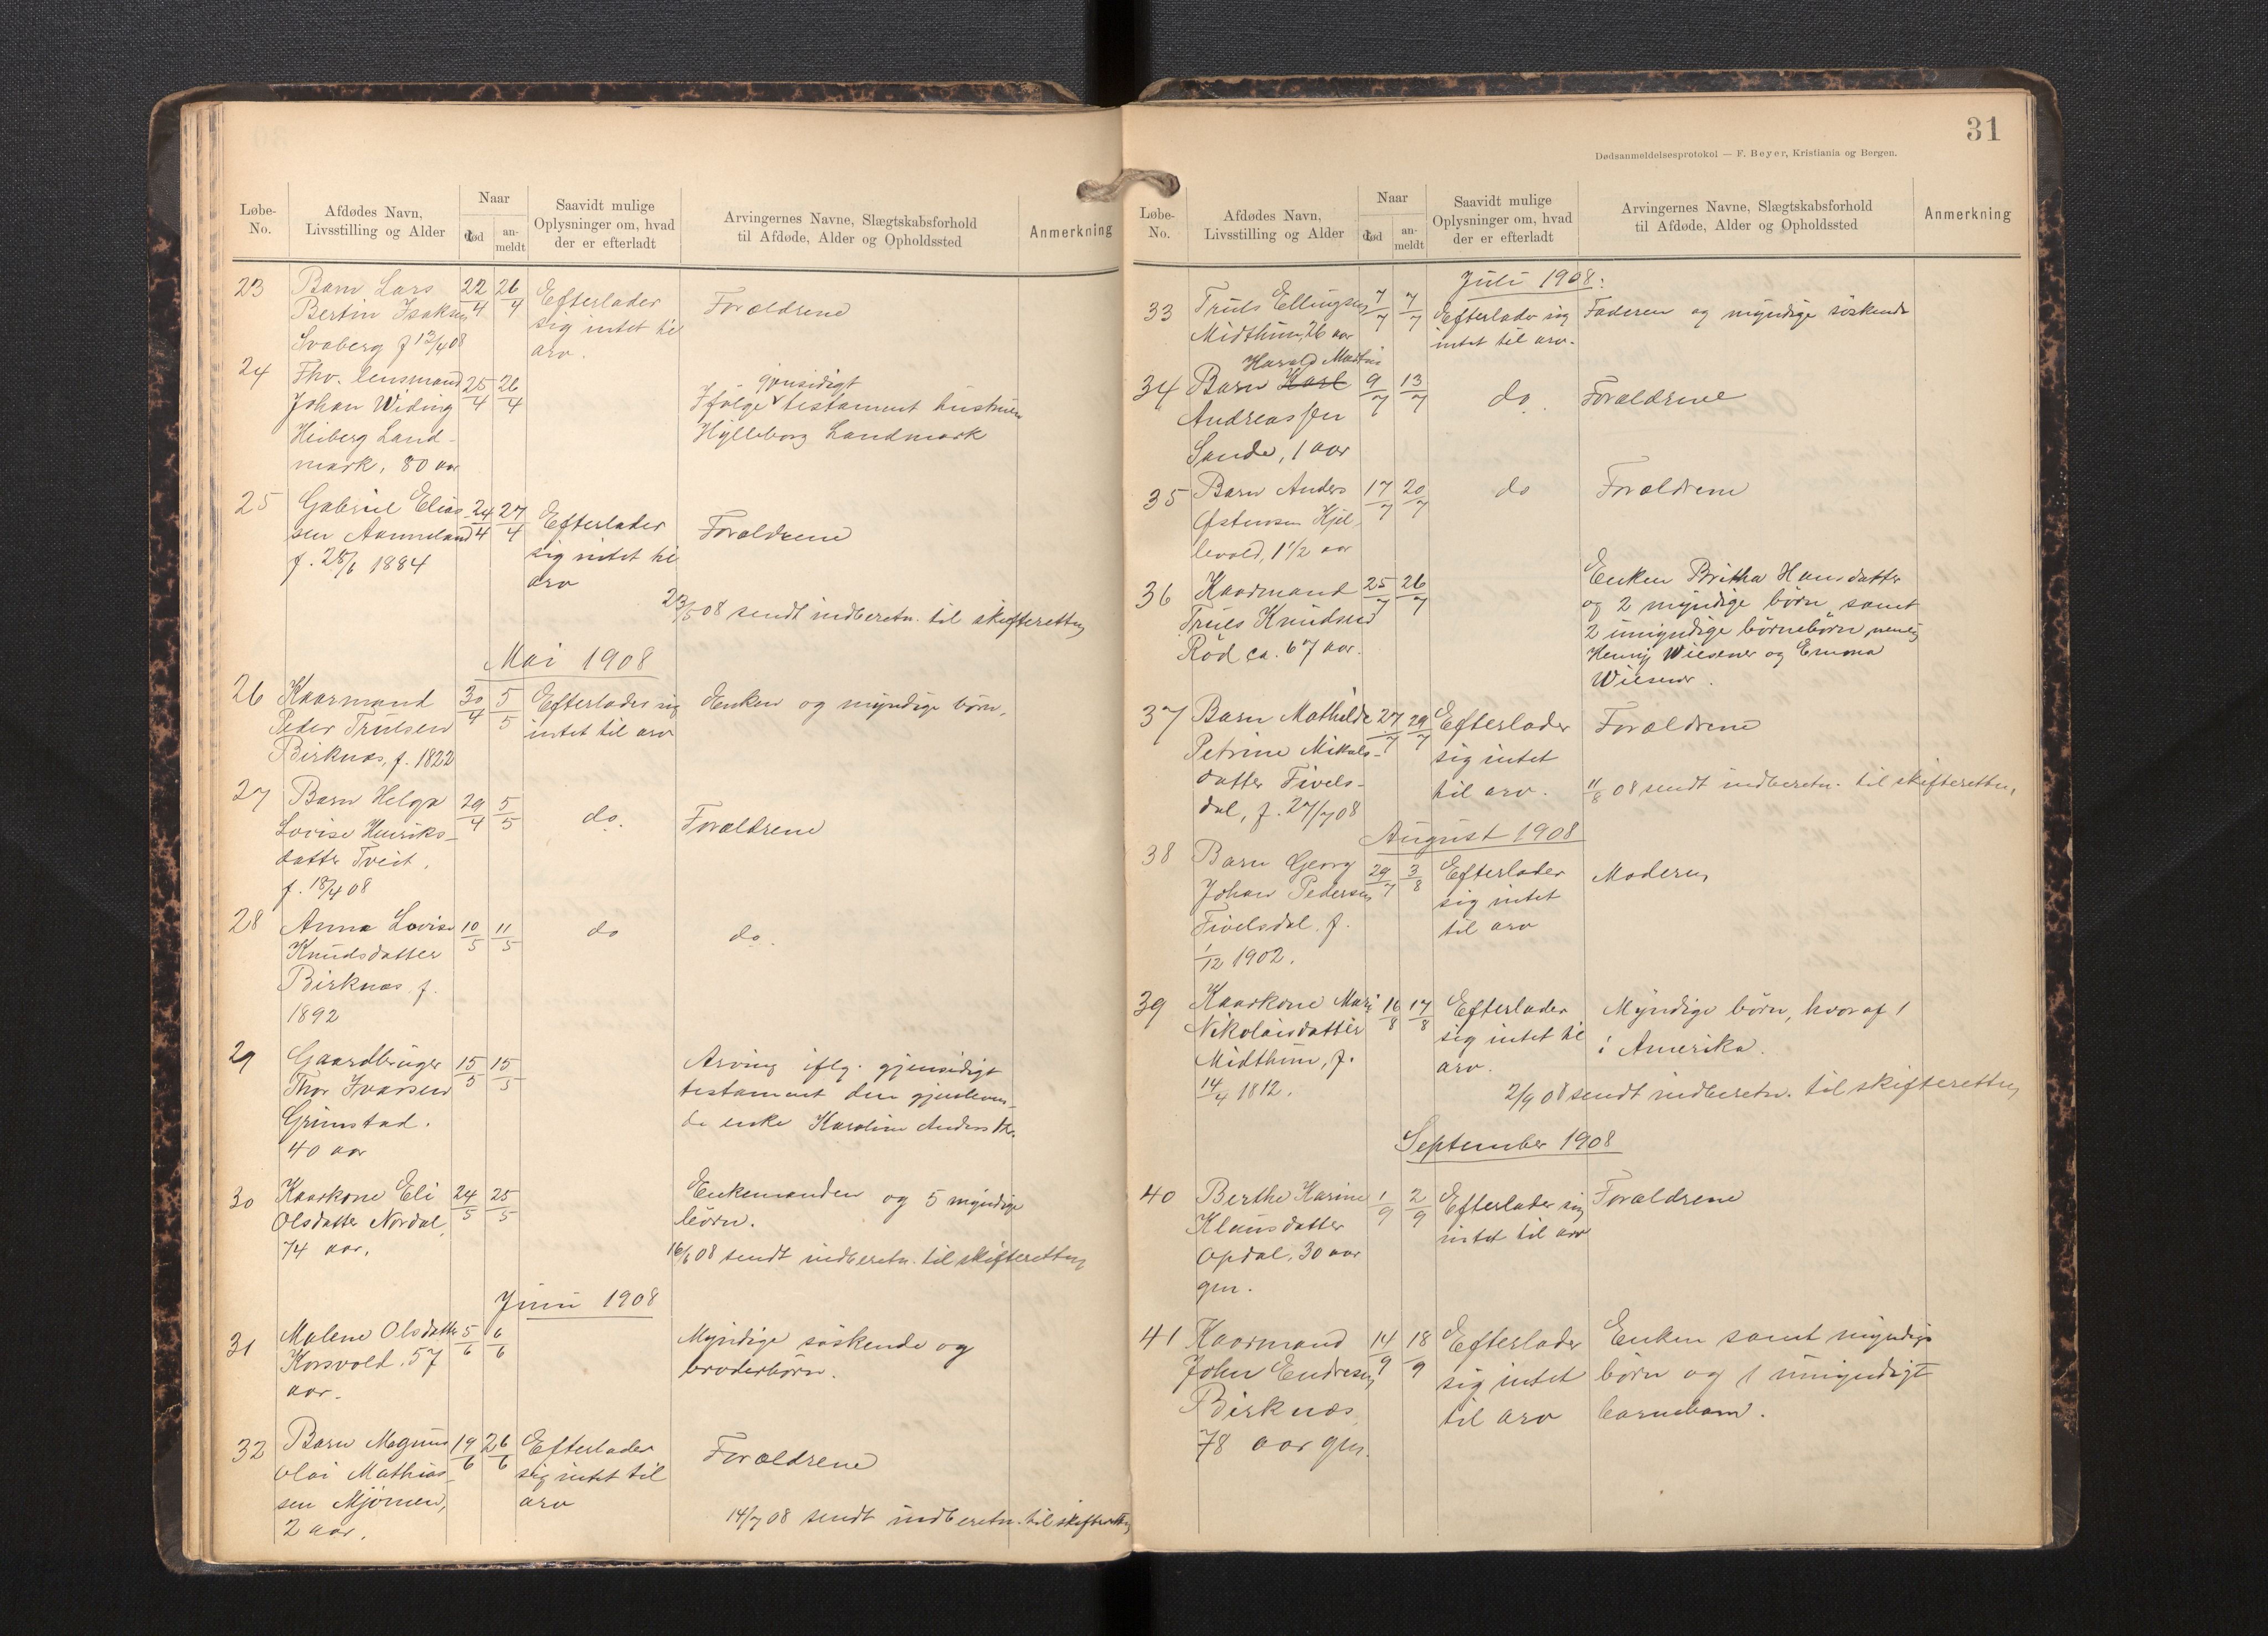 Løbe-No.
Afdødes Navn, Livsstilling og Alder
Naar
død
an-meldt
Saavidt mulige Oplysninger om, hvad der er efterladt
Arvingernes Navne, Slægtskabsforhold til Afdøde, Alder og Opholdssted
Anmerkning
23 Barn Lars 22/4 26/4 Efterlader Forældrene
Bertin Isaksen sig intet til
Svaberg f 12/4 08 arv.
24 Fhv. lensmand 25/4 26/4 gjensidigt
Johan Widing Ifølge testament hustruen
Heiberg Land- Hylleborg Landmark
mark, 80 aar
25 Gabriel Elias- 24/4 27/4 Efterlader Forældrene
sen Aammeland sig intet til
f. 25/6 1884 arv
23/5 08 sendt indberetn. til skifteretten
Mai 1908
26 Kaarmand 30/4 5/5 Efterlader sig Enken og myndige børn.
Peder Trulsen intet til arv
Birknæs, f. 1822
27 Barn Helga 29/4 5/5 do. Forældrene
Lovise Henriks-
datter Tveit,
f. 18/4 08
28 Anna Lovise 10/5 11/5 do do.
Knudsdatter
Birknæs f.
1892
29 Gaardbruger 15/5 15/5 Arving iflg. gjensidigt
Thor Ivarsen testament den gjenleven-
Grimstad. de enke Karoline Anders dtr.
40 aar
30 Kaarkone Eli 24/5 25/5 Enkemanden og 5 myndige
Olsdatter Nordal, børn.
74 aar.
16/6 08 sendt indberetn. til skifteretten
Juni 1908
31 Malene Olsdatter 5/6 6/6 Myndige søskende og
Korsvold. 57 broderbørn.
aar.
32 Barn Magnus 19/6 26/6 Efterlader Forældrene
Olai Mathias- sig intet til
sen Mjømen, arv
2 aar.
14/7 08 sendt indberetn. til skifteretten
31
Dødsanmeldelsesprotokol — F. Beyer, Kristiania og Bergen.
Løbe-No.
Afdødes Navn, Livsstilling og Alder
Naar
død
an-meldt
Saavidt mulige Oplysninger om, hvad der er efterladt
Arvingernes Navne, Slægtskabsforhold til Afdøde, Alder og Opholdssted
Anmerkning
Juli 1908.
33 Truls Ellingsen 7/7 7/7 Efterlader sig Faderen og myndige søskende
Midthun, 26 aar intet til arv.
Harald Martin
34 Barn Karl 9/7 13/7 do. Forældrene
Andreassen
Sande, 1 aar
35 Barn Anders 17/7 20/7 do Forældrene
Østensen Kjel-
levold, 1 1/2 aar
36 Kaarmand 25/7 26/7 Enken Britha Hansdatter
Truls Knudsen og 2 myndige børn samt
Rød ca. 67 aar. 2 umyndige børnebørn, nemlig
Henny Wiesener og Emma
Wiesener.
37 Barn Mathilde 27/7 29/7 Efterlader Forældrene
Petrine Mikals- sig intet
datter Fivels- til arv.
dal, f. 27/7 08
11/8 08 sendt indberetn. til skifteretten,
August 1908
38 Barn Georg 29/7 3/8 Efterlader Moderen
Johan Pedersen sig intet
Fivelsdal, f. til arv
1/12 1902.
39 Kaarkone Mari 16/8 17/8 Efterlader Myndige børn, hvoraf 1
Nikolaisdatter sig intet til i Amerika.
Midthun, f. arv.
14/4 1812.
2/9 08 sendt indberetn. til skifteretten
September 1908
40 Berthe Karine 1/9 2/9 Efterlader sig Forældrene
Klausdatter intet til arv
Opdal, 30 aar
gm.
41 Kaarmand 14/9 18/9 Efterlader Enken samt myndige
John Endresen sig intet børn og 1 umyndigt
Birknæs til arv barnebarn.
78 aar gm.